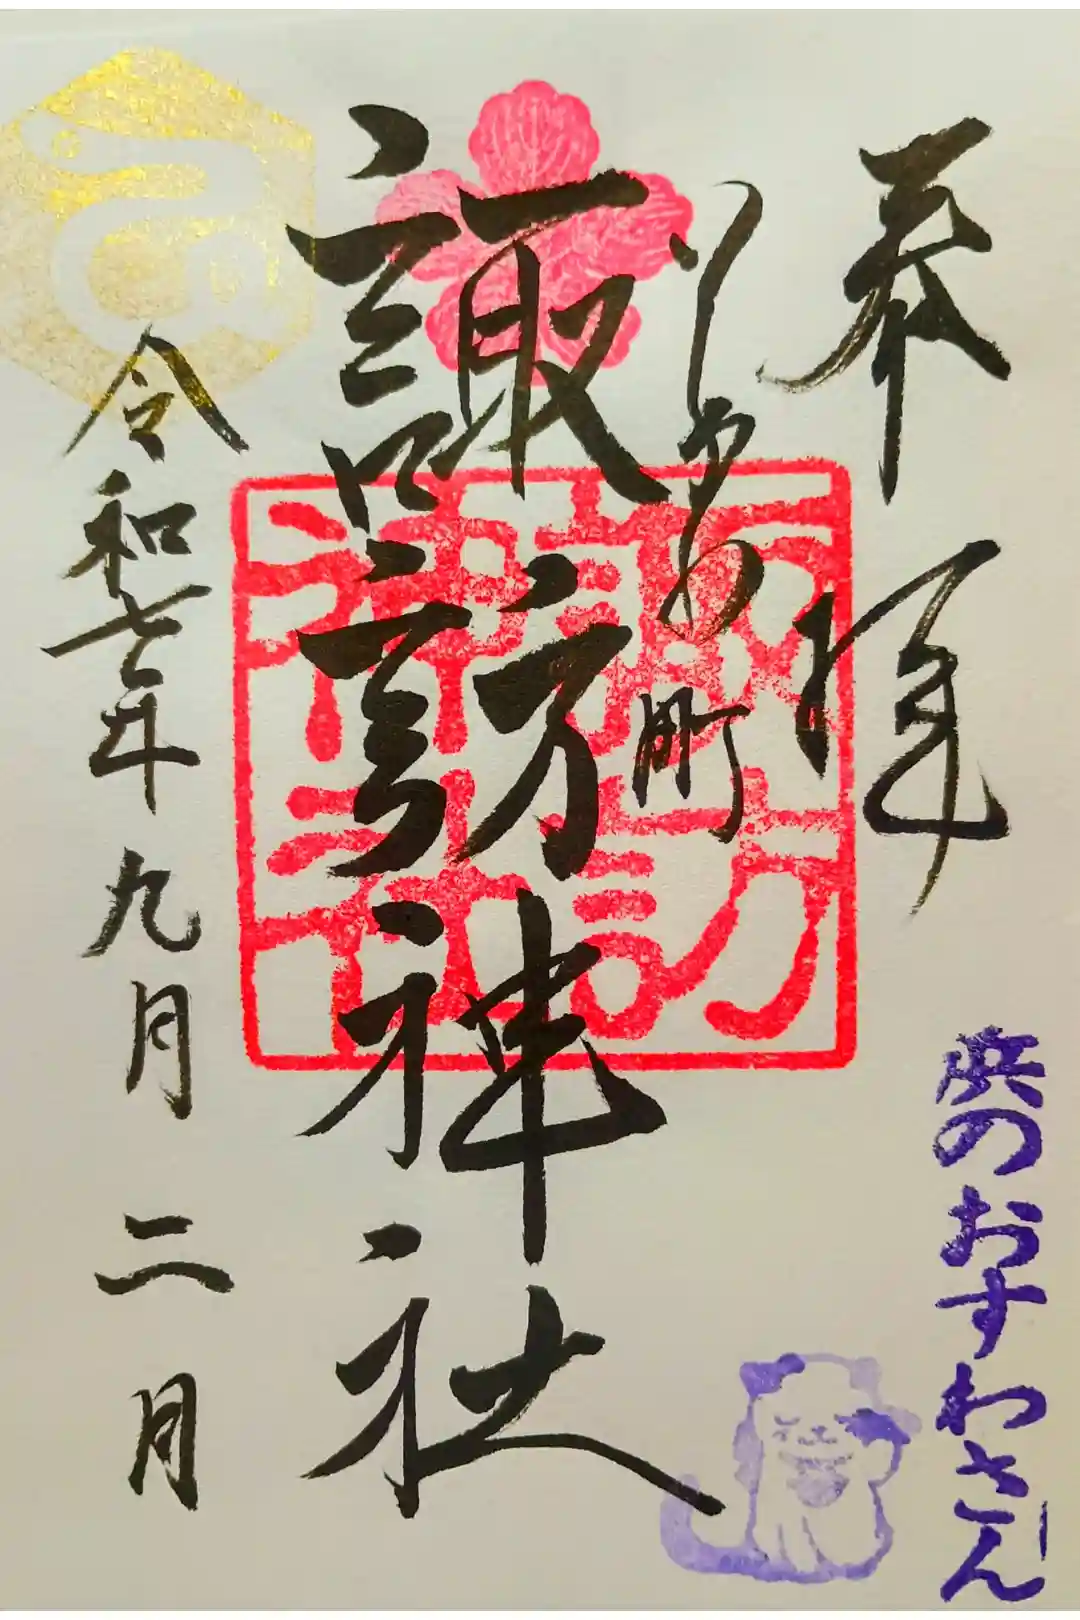 奉拝
町
諏訪神社
令和七年九月二日
諏訪
神社
浜のおすわさん